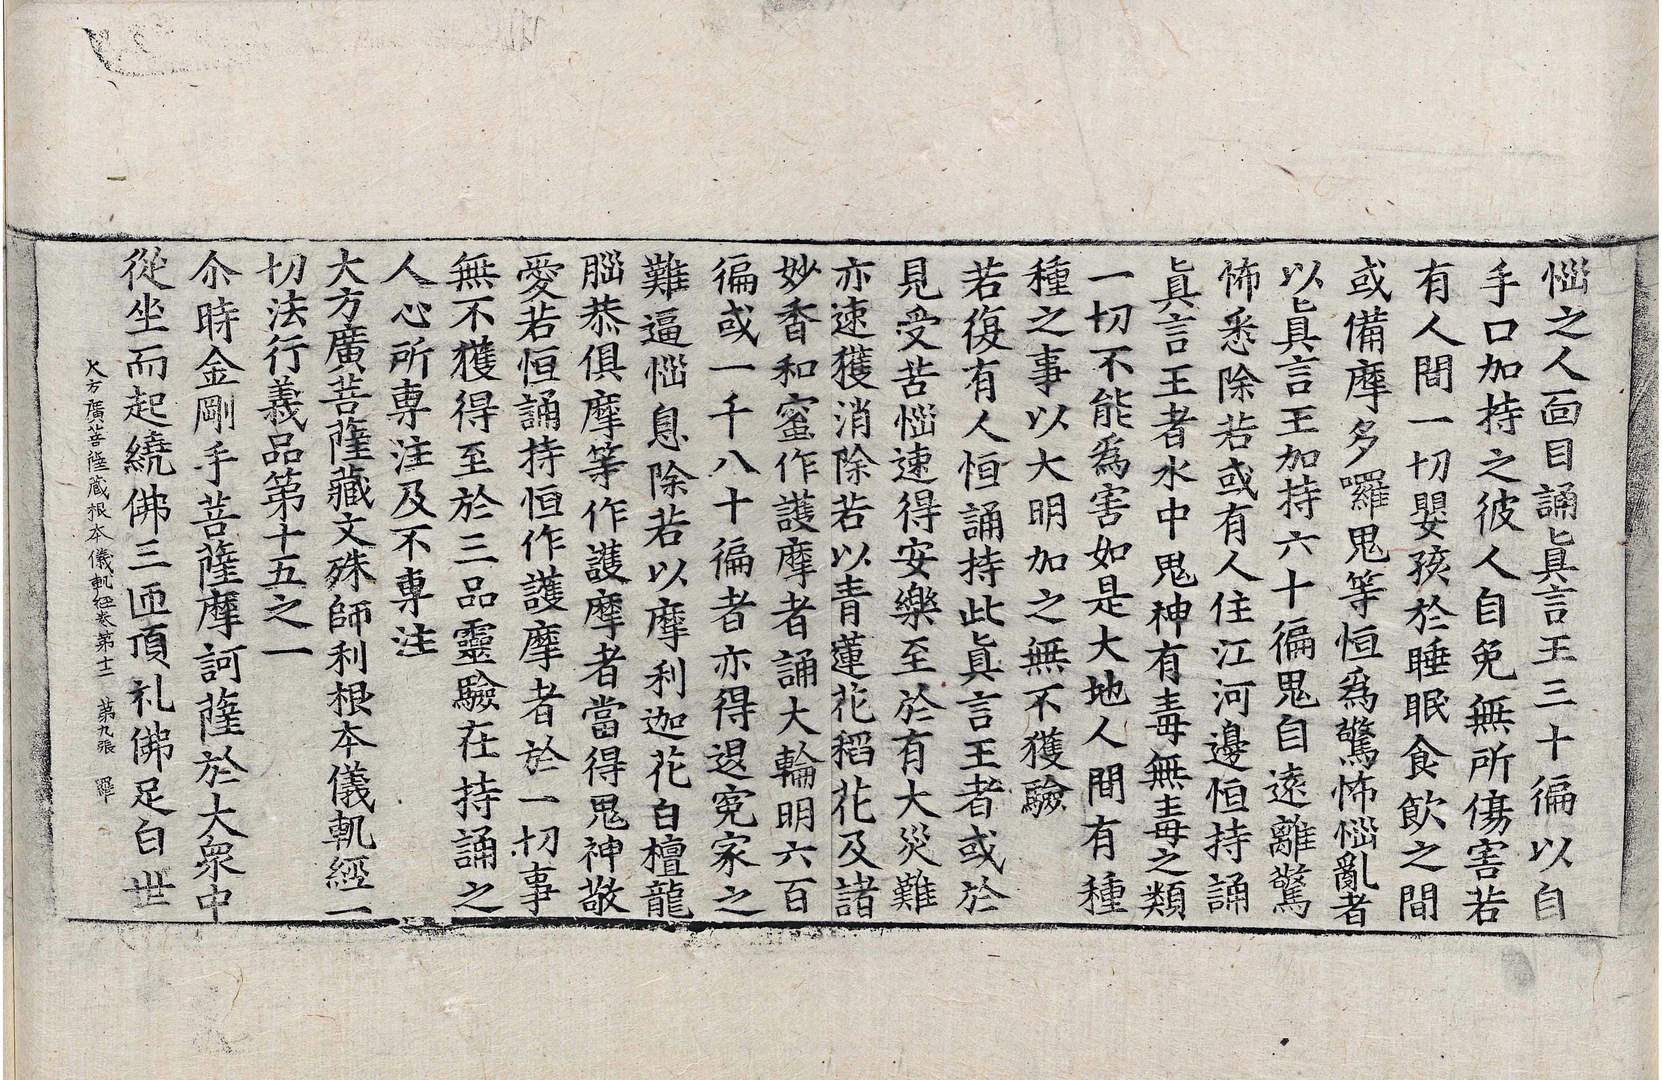 惱之人面目誦眞言王三十徧以自
手口加持之彼人自免無所傷害若
有人間一切嬰孩於睡眠食飮之間
或備摩多囉鬼等恒爲驚怖惱亂者
以眞言王加持六十徧鬼自遠離驚
怖悉除若或有人住江河邊恒持誦
眞言王者水中鬼神有毒無毒之類
一切不能爲害如是大地人間有種
種之事以大明加之無不獲驗
若復有人恒誦持此眞言王者或於
見受苦惱速得安樂至於有大災難
亦速獲消除若以青蓮花稻花及諸
妙香和蜜作護摩者誦大輪明六百
徧或一千八十徧者亦得退寃家之
難逼惱息除若以摩利迦花白檀龍
腦恭俱摩等作護摩者當得鬼神敬
愛若恒誦持恒作護摩者於一切事
無不獲得至於三品靈驗在持誦之
人心所專注及不專注
大方廣菩薩藏文殊師利根本儀軌經一
切法行義品第十五之一
尒時金剛手菩薩摩訶薩於大衆中
從坐而起繞佛三匝頂礼佛足白世
大方廣菩薩藏根本儀軌經卷第十二 第九張 羅